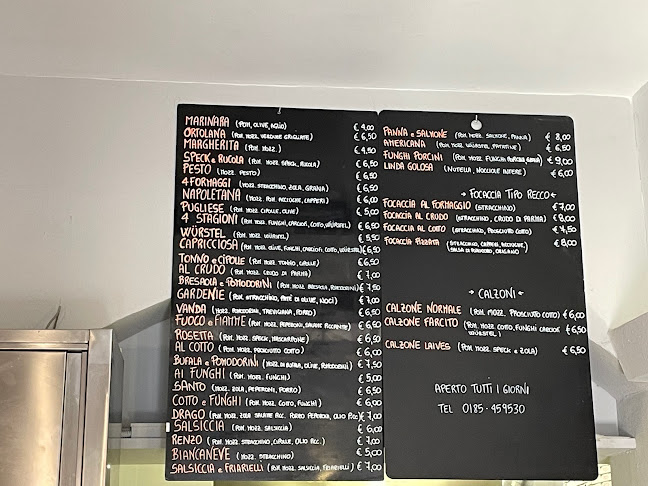 MARINARA (POM, OLIVE, AGLIO) € 4,00
ORTOLANA (POM. MOZZ. VERDURE GRIGLIATE) € 6,50
MARGHERITA (POM. MOZZ.) € 4,50
SPECK e RUCOLA (POM. MOZZ. SPECK, RUCOLA) € 6,50
PESTO (MOZZ. PESTO)
4 FORMAGGI (MOZZ. STRACCHINO, ZOLA, GRANA) € 6,50
NAPOLETANA (POM. MOZZ. ACCIUGHE, CAPPERI) € 6,00
PUGLIESE (POM. MOZZ. CIPOLLE, OLIVE) € 5,50
4 STAGIONI (POM. MOZZ. FUNGHI, CARCIOFI, COTTO, WÜRSTEL) € 6,50
WÜRSTEL (POM. MOZZ. WÜRSTEL) € 5,50
CAPRICCIOSA (POM. MOZZ. OLIVE, FUNGHI, CARCIOFI, COTTO, WÜRSTEL) € 6,50
TONNO e CIPOLLE (POM. MOZZ. TONNO, CIPOLLE) € 6,50
AL CRUDO (POM. MOZZ. CRUDO DI PARMA) € 7,00
BRESAOLA e POMODORINI (POM. MOZZ. BRESAOLA, POMODORINI) € 7,50
GARDENIE (POM. STRACCHINO, PATÉ DI OLIVE, NOCI) € 7,00
VANDA (MOZZ. POMODORINI, TREVIGIANA, PORRO) € 6,50
FUOCO e FIAMME (POM. MOZZ. PEPERONI, SALAME PICCANTE) € 6,50
ROSETTA (POM. MOZZ. SPECK, MASCARPONE) € 6,50
AL COTTO (POM. MOZZ. PROSCIUTTO COTTO) € 6,00
BUFALA e POMODORINI (MOZZ. DI BUFALA, OLIVE, POMODORINI) € 7,50
AI FUNGHI (POM. MOZZ. FUNGHI) € 5,00
SANTO (MOZZ. ZOLA, PEPERONI, PORRO) € 6,50
COTTO e FUNGHI (POM. MOZZ. COTTO, FUNGHI) € 6,00
DRAGO (POM. MOZZ. ZOLA SALAME PICC. PORRO PEPERONI, OLIO PICC.) € 7,00
SALSICCIA (POM. MOZZ. SALSICCIA) € 6,00
RENZO (POM. MOZZ. STRACCHINO, CIPOLLE, OLIO PICC.) € 7,00
BIANCANEVE (MOZZ. STRACCHINO) € 5,00
SALSICCIA e FRIARIELLI (POM. MOZZ. SALSICCIA, FRIARIELLI) € 7,00
PANNA e SALMONE (POM. MOZZ. SALMONE, PANNA) € 8,00
AMERICANA (POM. MOZZ. WÜRSTEL, PATATINE) € 6,50
FUNGHI PORCINI (POM. MOZZ. FUNGHI PORCINI) € 9,00
LINDA GOLOSA (NUTELLA, NOCCIOLE INTERE) € 6,00
→ FOCACCIA TIPO RECCO ←
FOCACCIA AL FORMAGGIO (STRACCHINO) € 7,00
FOCACCIA AL CRUDO (STRACCHINO, CRUDO DI PARMA) € 9,00
FOCACCIA AL COTTO (STRACCHINO, PROSCIUTTO COTTO) € 7,50
FOCACCIA PIZZATA (STRACCHINO, CAPPERI, ACCIUGHE, SALSA DI POMODORO, ORIGANO) € 8,00
→ CALZONI ←
CALZONE NORMALE (POM. MOZZ. PROSCIUTTO COTTO) € 6,00
CALZONE FARCITO (POM. MOZZ. COTTO, FUNGHI CARCIOFI WÜRSTEL) € 6,50
CALZONE LAIVES (POM. MOZZ. SPECK e ZOLA) € 6,50
APERTO TUTTI I GIORNI
TEL 0185-459530